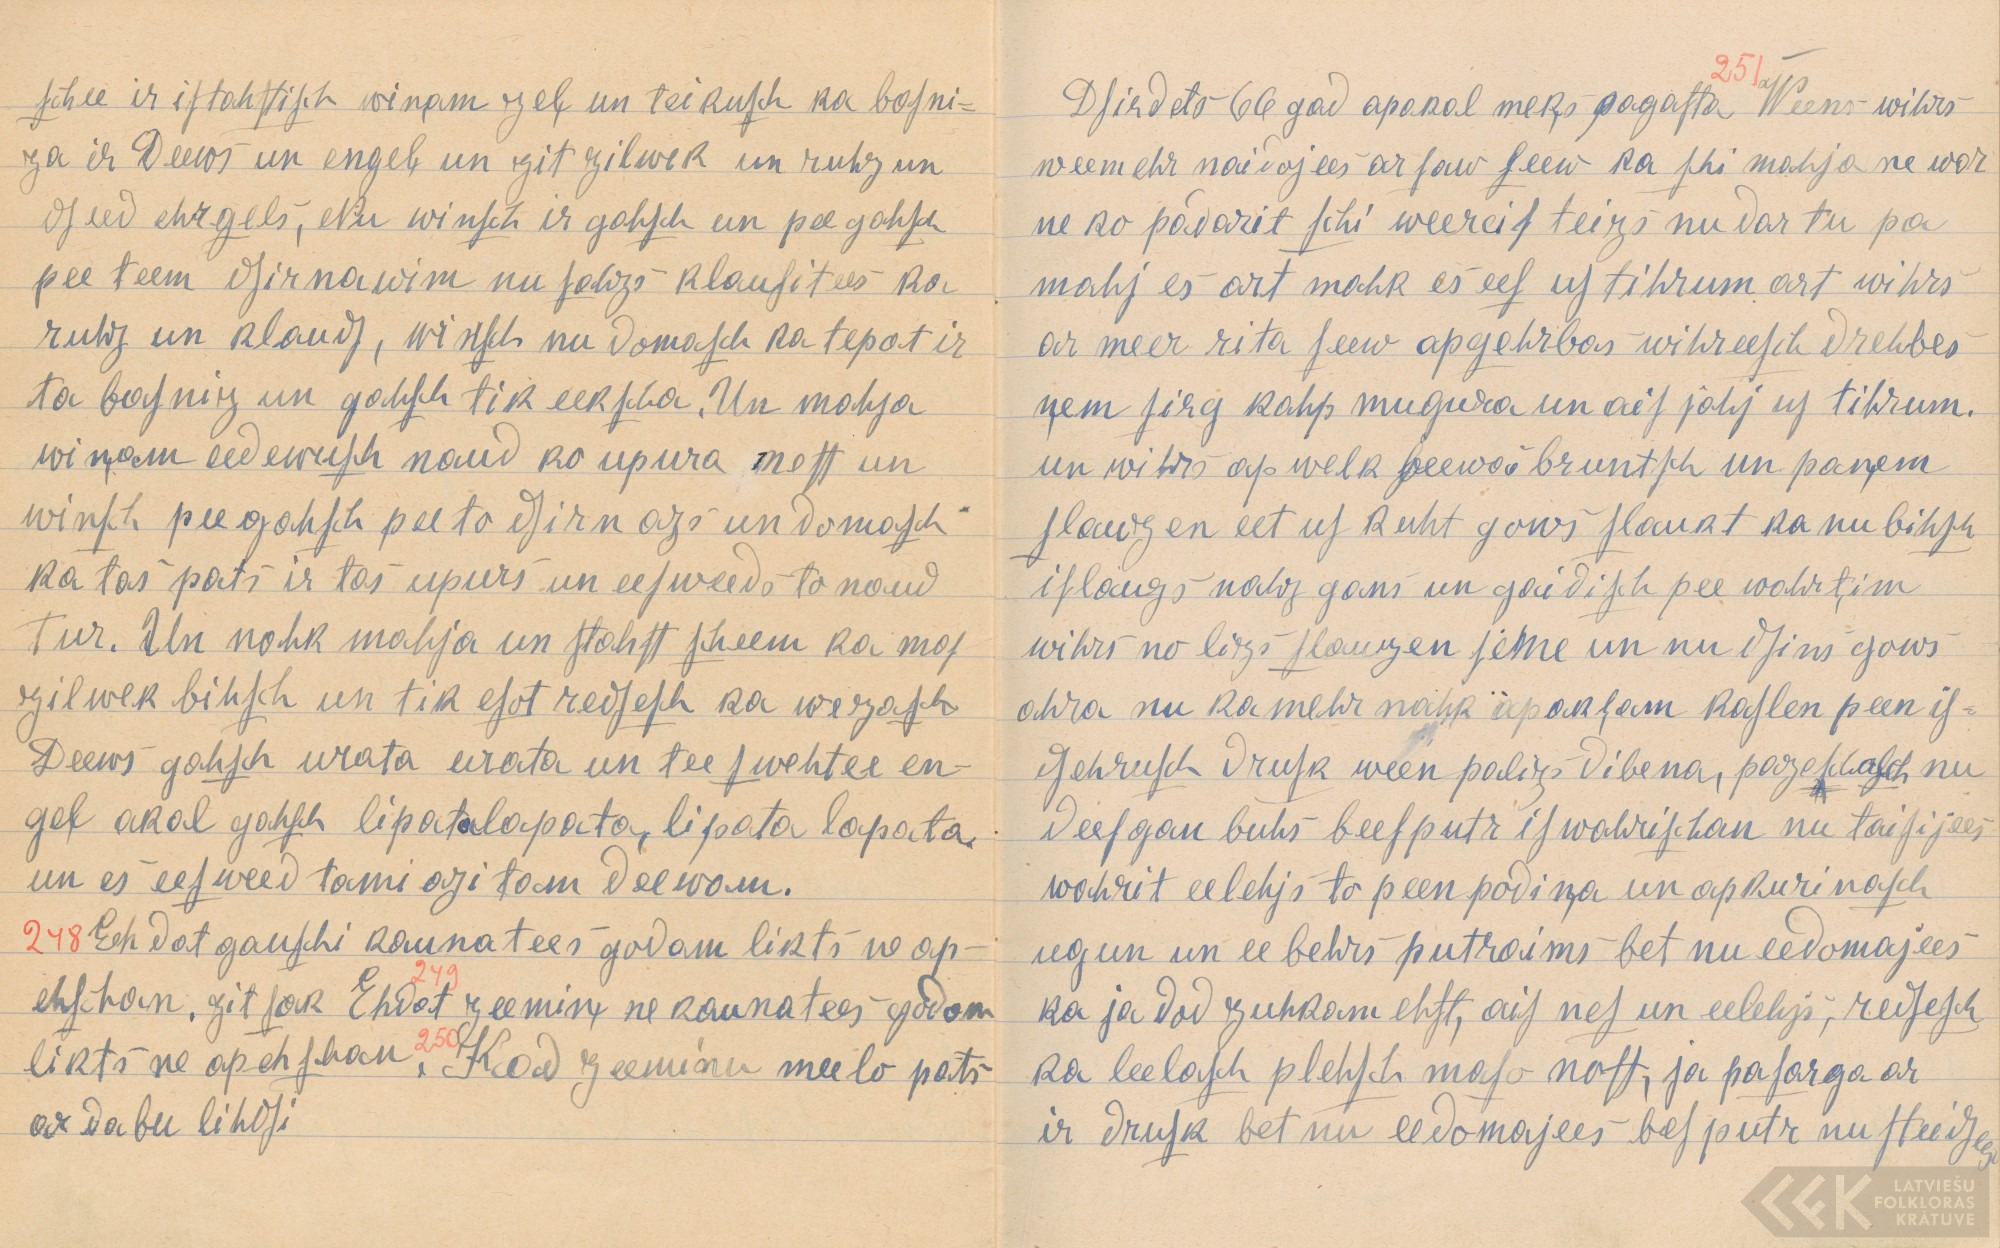 schee ir iſtahſtiſch wiņam zeļ un teikuſch ka baſni=
za ir Deews un engeļ un zit zilwek un ruhz un
dſeed ehrgels, Nu winſch ir gahſch un pee gahſch
pee teem dſirnawim nu ſahzs klauſitees ka
ruhz un klaudſ, winſch nu domaſch ka tepat ir
ta baſniz un gahſch tik eekſcha. Un mahja
wiņam eedewuſch naud ko upura meſt un
winſch pee gahſch pee to dſirn azs un domaſch
ka tas pats ir tas upurs un eeſweeds to naud
tur. Un nahk mahja un ſtahſt ſcheem ka maſ
zilwek bihſch un tik eſot redſeſch ka wezaſch
Deews gahſch urata urata un tee ſwehtee en-
geļ akal gahſch lipata lapata, lipata lapata.
un es eeſweed tami azi tam deewam.
248 Eeh dat gauſchi kaunatees godam likts ne ap-
ehſchan. zit ſak 249 Ehdat zeemiņ ne kaunatees godam
likts ne apehſchan. 250 Kad zeemiņu meelo pats
ar dabu lihdſi
251
Dſirdets 66 gad apakal meķs pagaſta Weens wihrs
weemehr naidojees ar ſaw ſeew ka ſhi mahja ne war
ne ko padarit ſchi weereiſ teizs nu dar tu pa
mahj es art mahk es eeſ uſ tihrum art wihrs
ar meer rita ſeew apgehrbas wihreeſch drehbes
ņem ſirg kahp mugura un aiſ jahj uſ tihrum.
un wihrs ap welk ſeewas bruntſch un paņem
ſlauzen eet uſ kuht gows ſlaukt ka nu bihſch
iſlaugs nahz gans un gaidiſch pee wahrtim
wihrs no lizs ſlauzen ſeme un nu dſins gows
ahra nu kamehr nahk apakļam kaſlen peen iſ=
dſehruſch druſk ween palizs dibena, pazeſchaſch nu
deeſgan buhs beeſputr iſwahriſchan nu taiſijees
wahrit eelehjs to peen podiņa un apkurinaſch
ugun un ee behrs putraims bet nu eedomajees
ka ja dod zuhkam ehſt, aiſ neſ un eelehjs, redſeſch
ka leelaſch plehſch maſo noſt, ja paſarga ar
ir druſk bet nu eedomajees beſ putr nu ſteidſees
LATVIEŠU
FOLKLORAS
KRĀTUVE